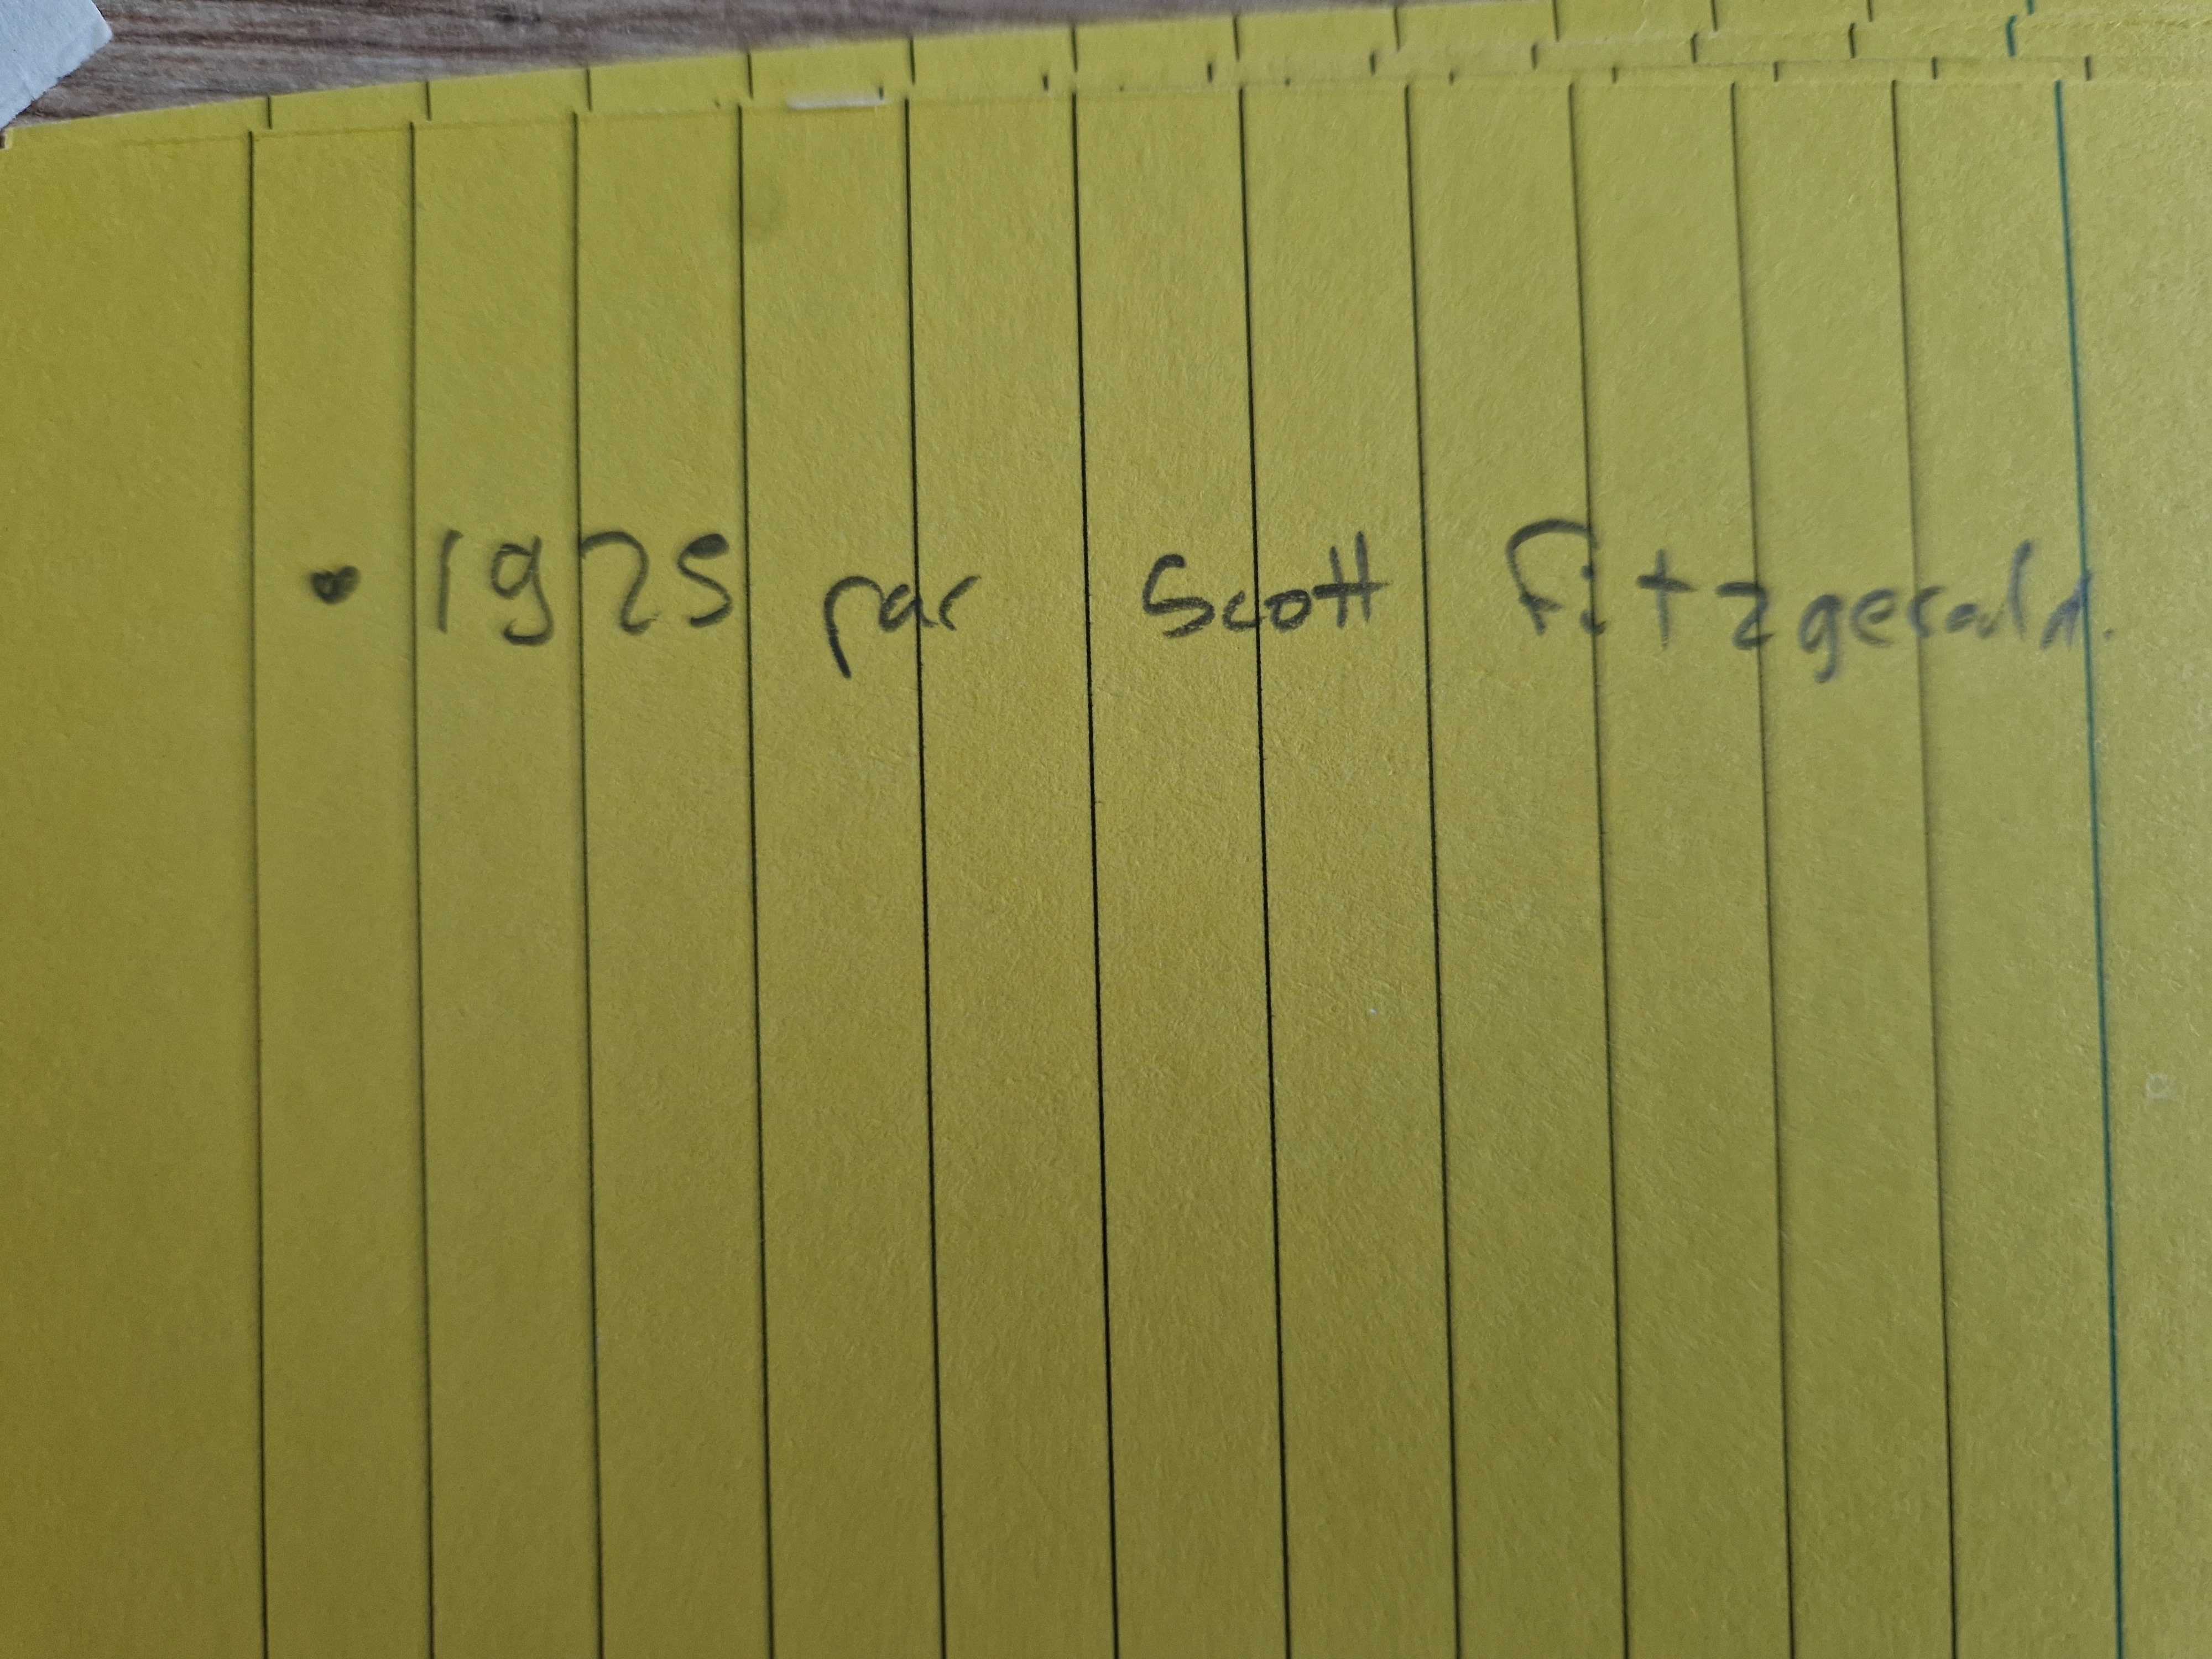 • 1925 par Scott Fitzgerald.